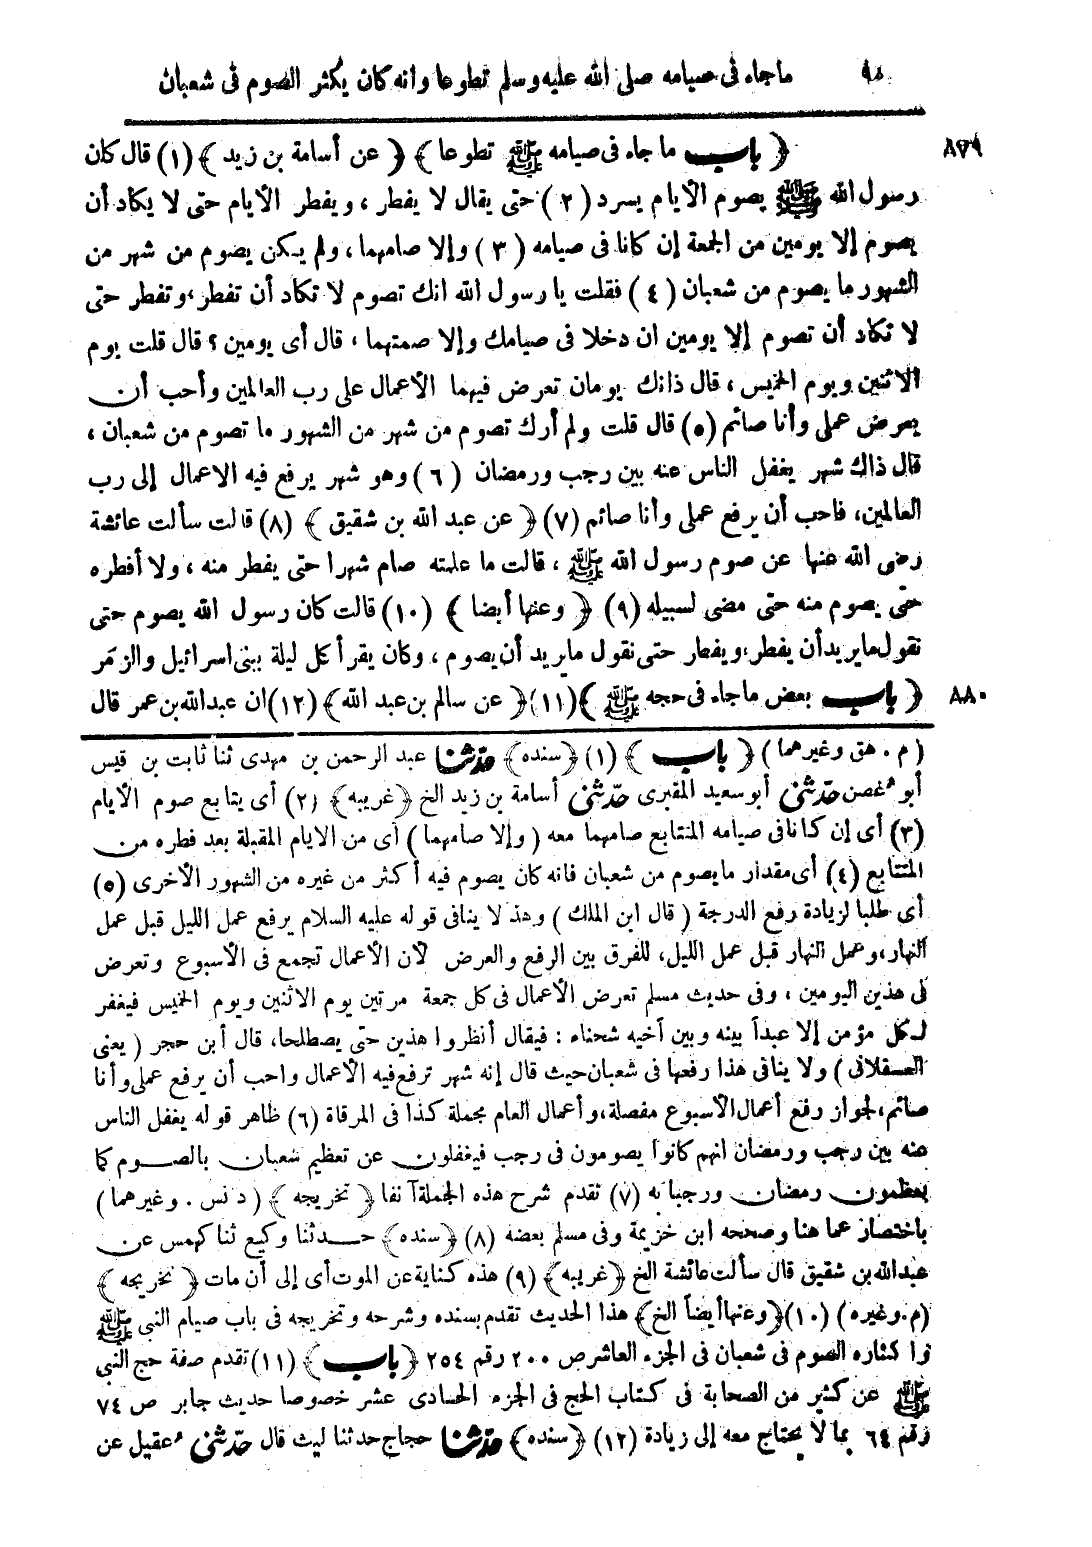 ٩٠ ما جاء فى صيامه صلى الله عليه وسلم تطوعا وانه كان يكثر الصوم فى شعبان
٨٧٩ ﴿ باب ما جاء فى صيامه ﷺ تطوعا ﴾ ﴿ عن أسامة بن زيد ﴾ (١) قال كان
رسول الله ﷺ يصوم الأيام يسرد (٢) حتى يقال لا يفطر ، ويفطر الأيام حتى لا يكاد أن
يصوم إلا يومين من الجمعة إن كانا فى صيامه (٣) وإلا صامهما ، ولم يكن يصوم من شهر من
الشهور ما يصوم من شعبان (٤) فقلت يا رسول الله انك تصوم لا تكاد أن تفطر ، وتفطر حتى
لا تكاد أن تصوم إلا يومين ان دخلا فى صيامك وإلا صمتهما ، قال أى يومين ؟ قال قلت يوم
الاثنين ويوم الخميس ، قال ذانك يومان تعرض فيهما الأعمال على رب العالمين وأحب أن
يعرض عملى وأنا صائم (٥) قال قلت ولم أرك تصوم من شهر من الشهور ما تصوم من شعبان ،
قال ذاك شهر يغفل الناس عنه بين رجب ورمضان (٦) وهو شهر يرفع فيه الاعمال إلى رب
العالمين، فاحب أن يرفع عملى وأنا صائم (٧) ﴿ عن عبد الله بن شقيق ﴾ (٨) قالت سألت عائشة
رضى الله عنها عن صوم رسول الله ﷺ ، قالت ما علمته صام شهرا حتى يفطر منه ، ولا أفطره
حتى يصوم منه حتى مضى لسبيله (٩) ﴿ وعنها أيضا ﴾ (١٠) قالت كان رسول الله يصوم حتى
نقول ما يريد أن يفطر، ويفطر حتى نقول ما يريد أن يصوم ، وكان يقرأ كل ليلة ببنى اسرائيل والزمَر
٨٨٠ ﴿ باب بعض ما جاء فى حجه ﷺ ﴾ (١١) ﴿ عن سالم بن عبد الله ﴾ (١٢) ان عبد الله بن عمر قال
( م . هق وغيرهما ) ﴿ باب ﴾ (١) ﴿ سنده ﴾ حدثنا عبد الرحمن بن مهدى ثنا ثابت بن قيس
أبو غصن حدثنى أبو سعيد المقبرى حدثنى أسامة بن زيد الخ ﴿ غريبه ﴾ (٢) أى يتابع صوم الأيام
(٣) أى إن كانا فى صيامه المتتابع صامهما معه ( وإلا صامهما ) أى من الايام المقبلة بعد فطره من
المتتابع (٤) أى مقدار ما يصوم من شعبان فانه كان يصوم فيه أكثر من غيره من الشهور الأخرى (٥)
أى طلبا لزيادة رفع الدرجة ( قال ابن الملك ) وهذ لا ينافى قوله عليه السلام يرفع عمل الليل قبل عمل
النهار، وعمل النهار قبل عمل الليل، للفرق بين الرفع والعرض لأن الأعمال تجمع فى الأسبوع وتعرض
فى هذين اليومين ، وفى حديث مسلم تعرض الأعمال فى كل جمعة مرتين يوم الاثنين ويوم الخميس فيغفر
لكل مؤمن إلا عبداً بينه وبين أخيه شحناء : فيقال أنظروا هذين حتى يصطلحا، قال أبن حجر ( يعنى
العسقلانى ) ولا ينافى هذا رفعها فى شعبان حيث قال إنه شهر ترفع فيه الأعمال واحب أن يرفع عملى وأنا
صائم، لجواز رفع أعمال الأسبوع مفصلة، وأعمال العام مجملة كذا فى المرقاة (٦) ظاهر قوله يغفل الناس
عنه بين رجب ورمضان انهم كانوا يصومون فى رجب فيغفلون عن تعظيم شعبان بالصوم كما
يعظمون رمضان ورجبا به (٧) تقدم شرح هذه الجملة آنفا ﴿ تخريجه ﴾ ( د نس . وغيرهما )
باختصار عما هنا وصححه ابن خزيمة وفى مسلم بعضه (٨) ﴿ سنده ﴾ حدثنا وكيع ثنا كهمس عن
عبد الله بن شقيق قال سألت عائشة الخ ﴿ غريبه ﴾ (٩) هذه كناية عن الموت أى إلى أن مات ﴿ تخريجه ﴾
(م. وغيره) (١٠) ﴿ وعنها أيضاً الخ ﴾ هذا الحديث تقدم بسنده وشرحه وتخريجه فى باب صيام النبى ﷺ
وا كثاره الصوم فى شعبان فى الجزء العاشر ص ٢٠٠ رقم ٢٥٤ ﴿ باب ﴾ (١١) تقدم صفة حج النبى
ﷺ عن كثير من الصحابة فى كتاب الحج فى الجزء الحادى عشر خصوصا حديث جابر ص ٧٤
رقم ٦٤ بما لا يحتاج معه إلى زيادة (١٢) ﴿ سنده ﴾ حدثنا حجاج حدثنا ليث قال حدثنى عقيل عن